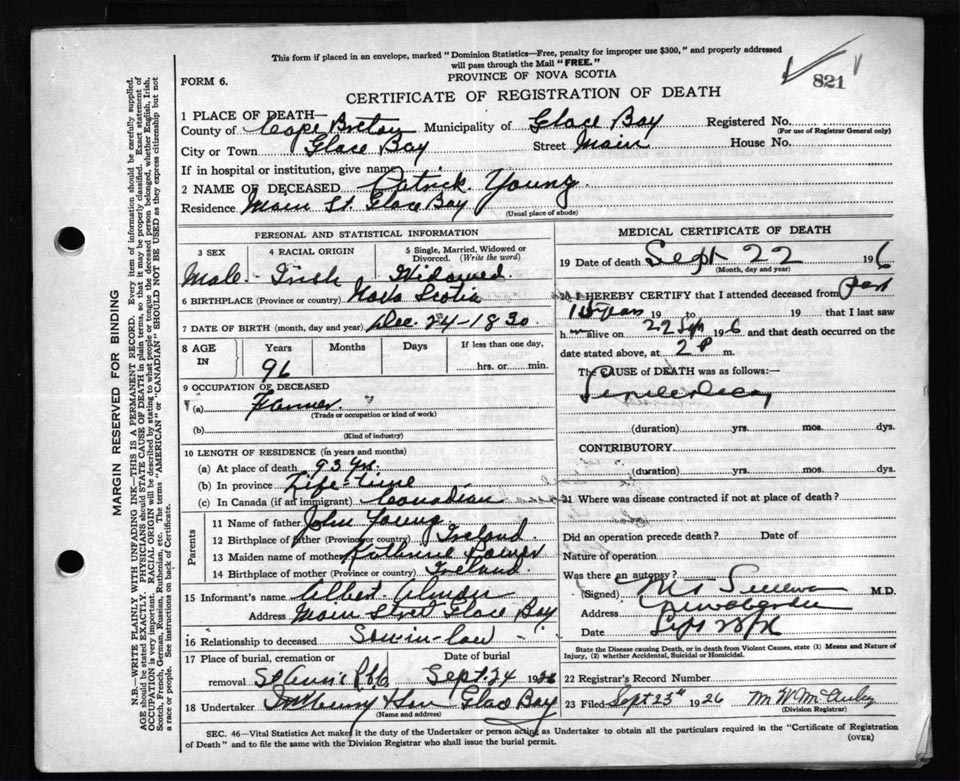 This form if placed in an envelope, marked "Dominion Statistics—Free, penalty for improper use $300," and properly addressed
will pass through the Mail "FREE."
PROVINCE OF NOVA SCOTIA
FORM 6.
821
CERTIFICATE OF REGISTRATION OF DEATH
1 PLACE OF DEATH—
County of Cape Breton Municipality of Glace Bay Registered No.
(For use of Registrar General only)
City or Town Glace Bay Street Main House No.
If in hospital or institution, give name
2 NAME OF DECEASED Patrick Young
Residence Main St. Glace Bay
(Usual place of abode)
PERSONAL AND STATISTICAL INFORMATION
3 SEX 4 RACIAL ORIGIN 5 Single, Married, Widowed or Divorced. (Write the word)
Male Irish Widowed
6 BIRTHPLACE (Province or country) Nova Scotia
7 DATE OF BIRTH (month, day and year) Dec. 24-1830
8 AGE IN Years Months Days If less than one day,
96 hrs. or min.
9 OCCUPATION OF DECEASED
(a) Farmer
(Trade or occupation or kind of work)
(b)
(Kind of industry)
10 LENGTH OF RESIDENCE (in years and months)
(a) At place of death 93 yr.
(b) In province Life time
(c) In Canada (if an immigrant) Canadian
Parents
11 Name of father John Young
12 Birthplace of father (Province or country) Ireland
13 Maiden name of mother
14 Birthplace of mother (Province or country) Ireland
15 Informant's name Albert
Address Main Street Glace Bay
16 Relationship to deceased Son-in-law
17 Place of burial, cremation or removal Date of burial
St Ann's Sept. 24 1926
18 Undertaker Glace Bay
(Name and address)
MEDICAL CERTIFICATE OF DEATH
19 Date of death Sept 22 1926
(Month, day and year)
20 I HEREBY CERTIFY that I attended deceased from past
15 years 19 to 19 that I last saw
h m alive on 22 Sep 1926 and that death occurred on the
date stated above, at 2 P m.
The CAUSE of DEATH was as follows:—
Senile Decay
(duration) yrs. mos. dys.
CONTRIBUTORY
(duration) yrs. mos. dys.
21 Where was disease contracted if not at place of death?
Did an operation precede death? Date of
Nature of operation
Was there an autopsy?
(Signed) M.D.
Address
Date Sept 23/26
State the Disease causing Death, or in death from Violent Causes, state (1) Means and Nature of
Injury, (2) whether Accidental, Suicidal or Homicidal.
22 Registrar's Record Number
23 Filed Sept 23rd 1926
(Division Registrar)
SEC. 46—Vital Statistics Act makes it the duty of the Undertaker or person acting as Undertaker to obtain all the particulars required in the "Certificate of Registration
of Death" and to file the same with the Division Registrar who shall issue the burial permit.
(OVER)
MARGIN RESERVED FOR BINDING
N.B.—WRITE PLAINLY WITH UNFADING INK—THIS IS A PERMANENT RECORD. Every item of information should be carefully supplied.
AGE should be stated EXACTLY. PHYSICIANS should STATE CAUSE OF DEATH in plain terms, so that it may be properly classified. Exact statement of
OCCUPATION is very important. RACIAL ORIGIN will be described by stating to what people or tongue the deceased person belonged, whether English, Irish,
Scotch, French, German, Russian, Ruthenian, etc. The terms "AMERICAN" or "CANADIAN" SHOULD NOT BE USED as they express citizenship but not
a race or people. See instructions on back of Certificate.